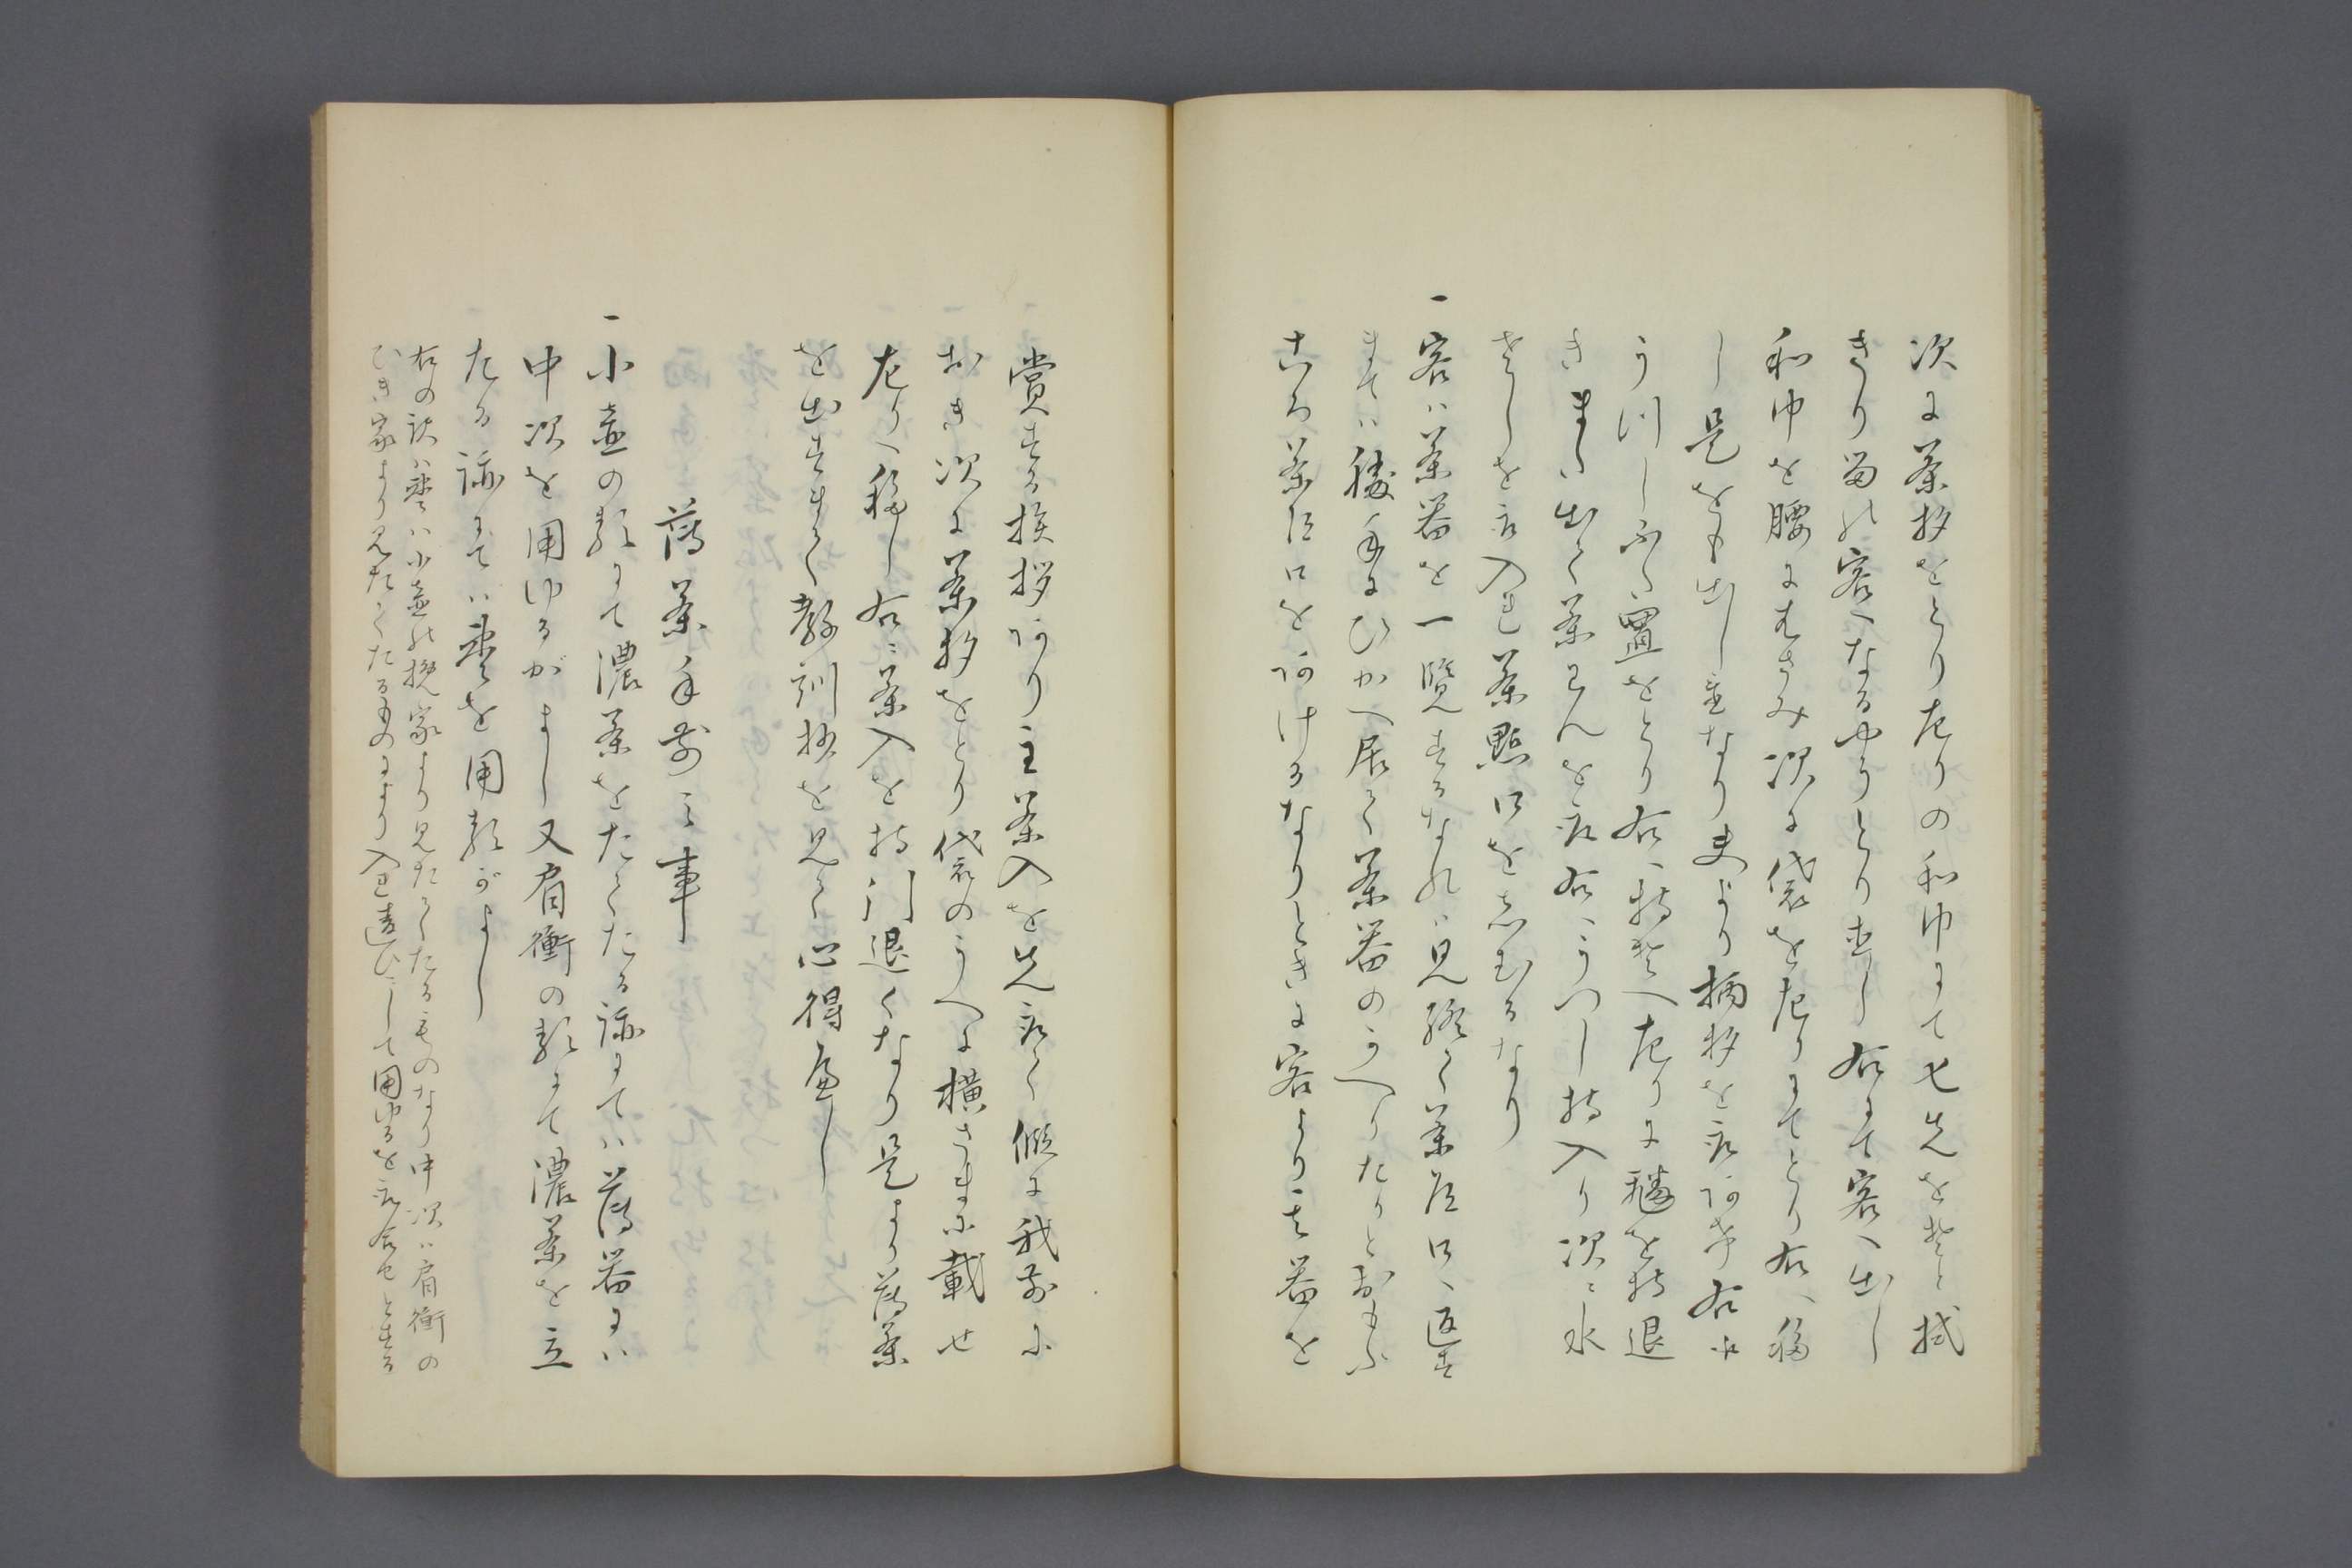 次に茶杓をとり左りの和巾にて七先をそと拭
きり留れ客へなるやうとり直し右にて客へ出し
和巾を腰にはさみ次に袋を左りにてとり右へ移
し是をも出し置なり夫より柄杓を取あげ右に
うつしふた置をとり右へ持そへ左りに翻を持退
きまた出て茶わんを取右へうつし持入り次に水
さしを取入れ茶點口をしむるなり
一客は茶器を一覧するなれは見終て茶道口へ返す
まては勝手にひかへ居て茶器のかへりたりとおもふ
ころ茶道口をあけるなりときに客より其器を
賞する挨拶あり主茶入を先取て假に我前に
おき次に茶杓をとり袋のうへに横さまに載せ
左りへ移し右に茶入を持引退くなり是より薄茶
を出すまて教訓抄を見て心得へし
薄茶手前之事
一小壺の類にて濃茶をたてたる跡にては薄器には
中次を用ゆるがよし又肩衝の類にて濃茶を立
たる跡にては棗を用類がよし
右の訳は棗は小壺れ挽家より見たてたるものなり中次は肩衝の
ひき家より見たてたるものにより入れ違ひにして用ゆるを取合せとする